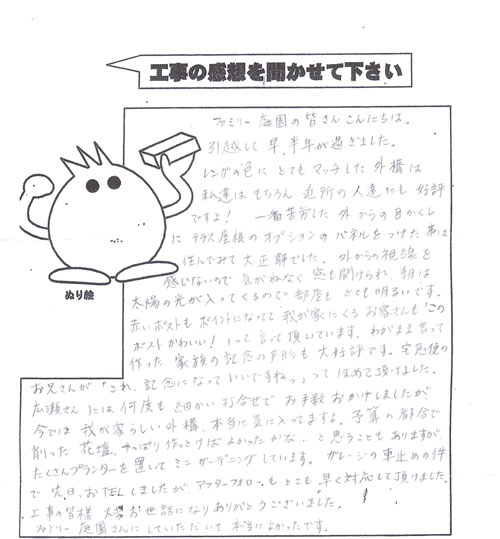 工事の感想を聞かせて下さい
ファミリー庭園の皆さんこんにちは。
引越して早、半年が過ぎました。
レンガの色にとてもマッチした外構は
私達はもちろん近所の人達にも好評
ですよ！一番苦労した外からの目かくし
にテラス屋根のオプションのパネルをつけた事は
住んでみて大正解でした。外からの視線を
感じないので気がねなく窓も開けられ、朝は
太陽の光が入ってくるので部屋もとても明るいです。
赤いポストもポイントになってて我が家にくるお客さんも"この
ポストかわいい！"って言って頂いています。わがまま言って
作った家族の記念の手形も大好評です。宅急便の
お兄さんが「これ、記念になっていいですねっ」ってほめて頂けました。
広瀬さんには何度も細かい打合せでお手数おかけしましたが
今では我が家らしい外構、本当に気に入ってますよ。予算の都合で
削った花壇、やっぱり作っとけばよかったかな…と思うこともありますが、
たくさんプランターを置いてミニガーデニングしています。ガレージの車止めの件
で先日、おTELしましたが、アフターフォローもとても早く対応して頂けました。
工事の皆様大変お世話になりありがとうございました。
ファミリー庭園さんにしていただいて本当によかったです。
ぬり絵